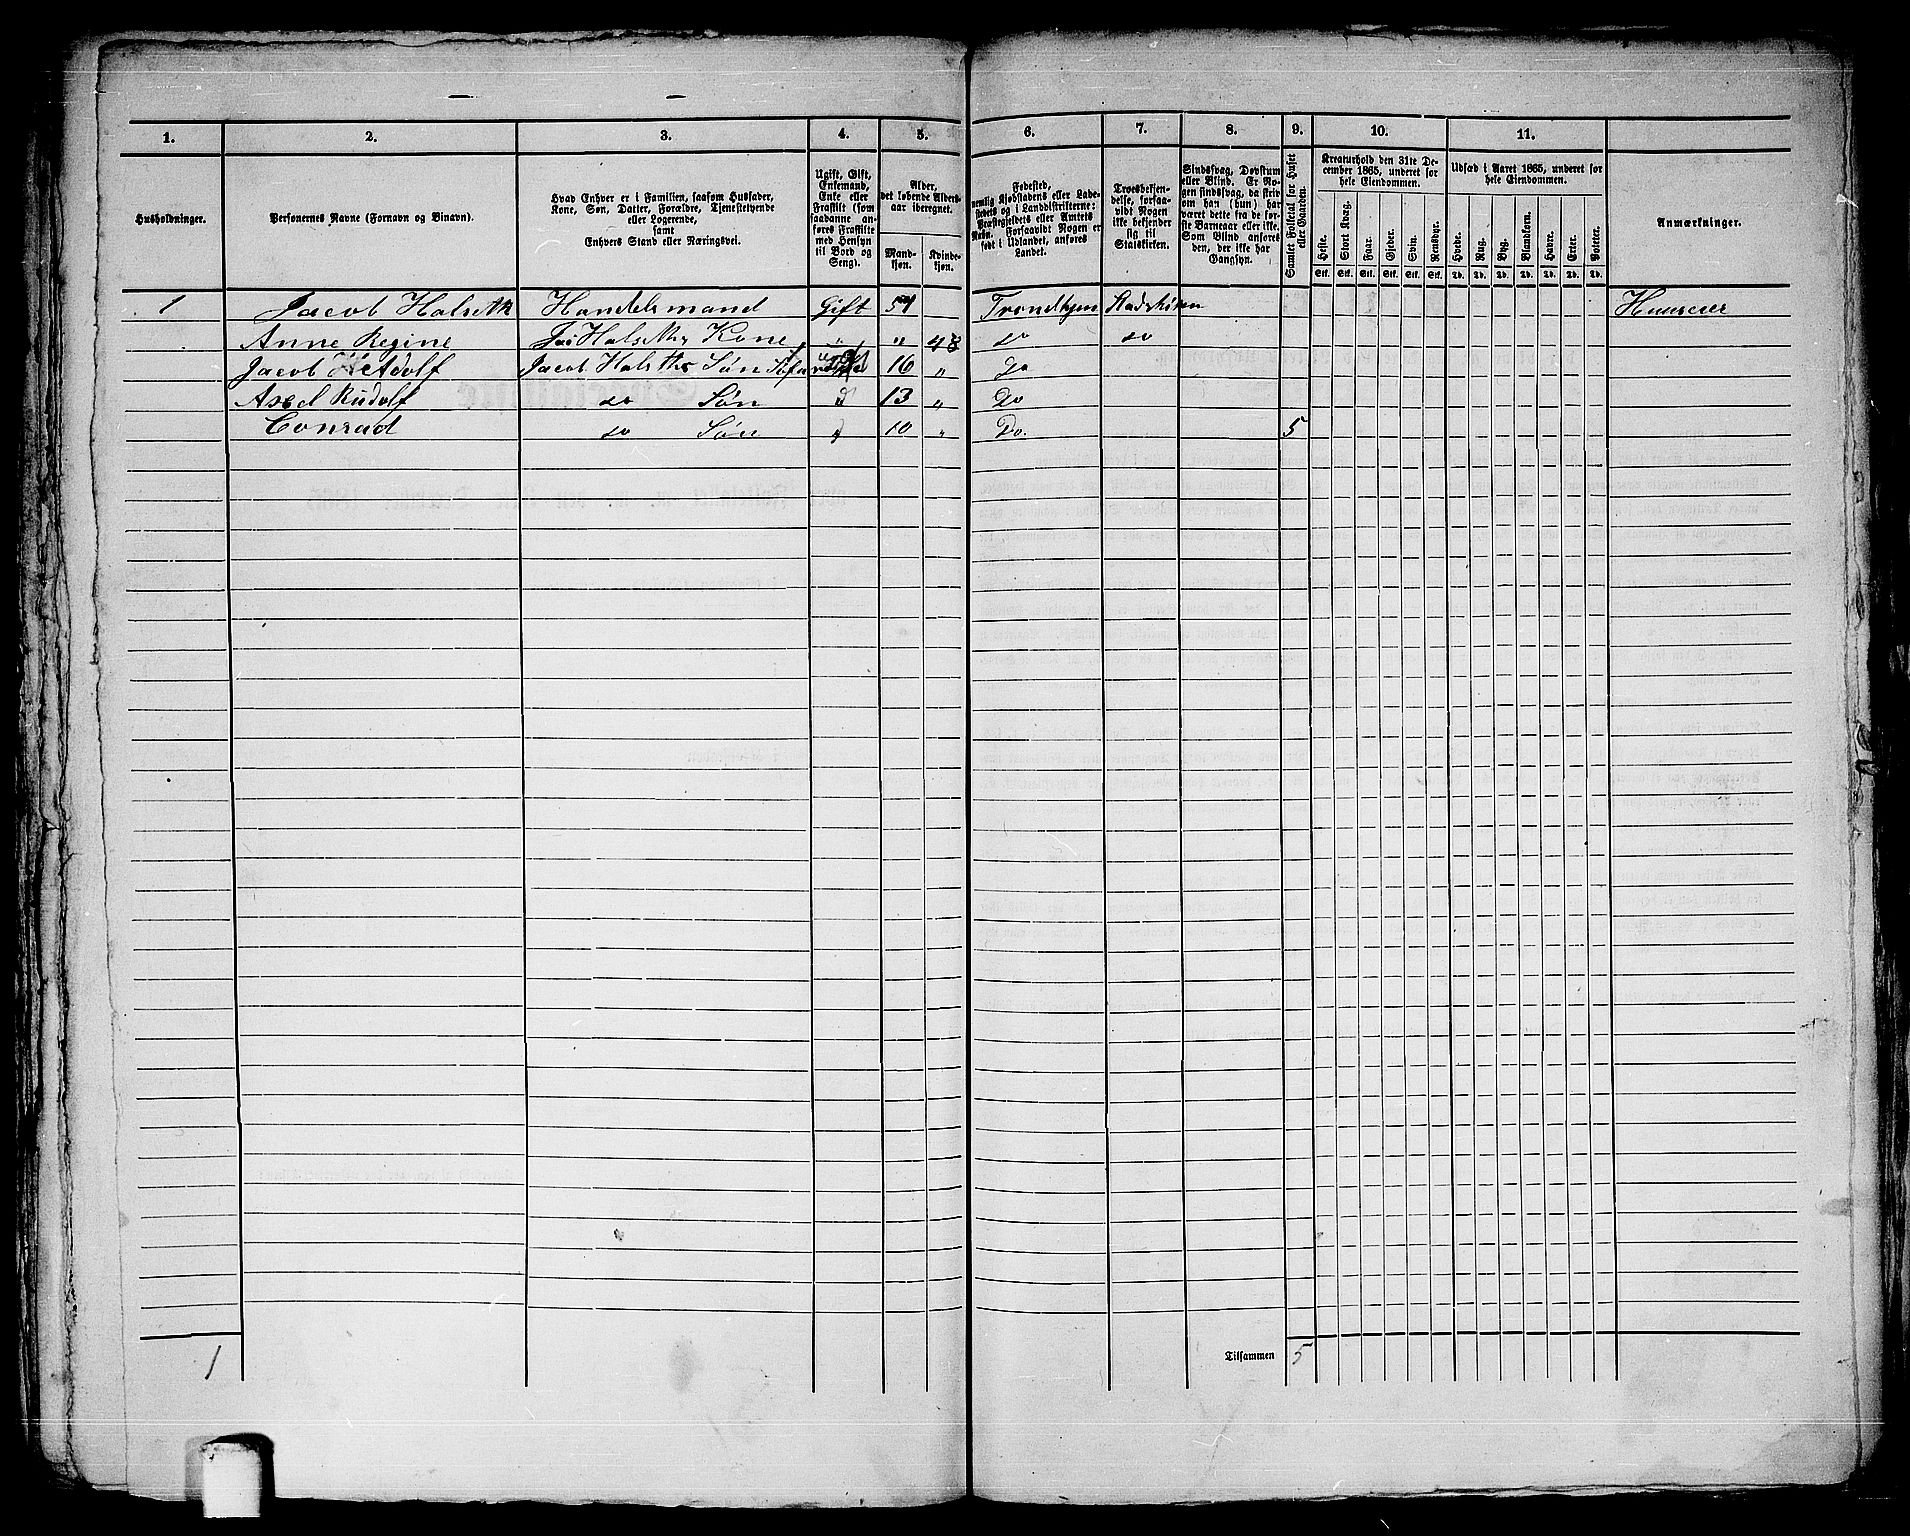 1. 2. 3. 4. 5. 6. 7. 8. 9. 10. 11.
Husholdninger.
Personernes Navne (Fornavn og Binavn).
Hvad Enhver er i Familien, saasom Husfader,
Kone, Søn, Datter, Forældre, Tjenestetyende
eller Logerende,
samt
Enhvers Stand eller Næringsvei.
Ugift, Gift,
Enkemand,
Enke eller
Fraskilt (som
saadanne an-
føres Fraskilte
med Hensyn
til Bord og
Seng).
Alder,
det løbende Alders-
aar iberegnet.
Mand-
kjøn.
Kvinde-
kjøn.
Fødested,
nemlig Kjøbstadens eller Lade-
stedets og i Landdistrikterne:
Præstegjeldets eller Amtets
Navn. Forsaavidt Nogen er
født i Udlandet, anføres
Landet.
Troesbekjen-
delse, forsaa-
vidt Nogen
ikke bekjender
sig til
Statskirken.
Sindssvag, Døvstum
eller Blind. Er No-
gen sindssvag, da skriv
om han (hun) har
været dette fra de før-
ste Barneaar eller ikke.
Som Blind anføres
den, der ikke har
Gangsyn.
Samlet Folketal for Huset
eller Gaarden.
Kreaturhold den 31te De-
cember 1865, underet for
hele Eiendommen.
Heste. Stort Kvæg. Faar. Gjeder. Svin. Rensdyr.
Stk. Stk. Stk. Stk. Stk. Stk.
Udsæd i Aaret 1865, underet for
hele Eiendommen.
Hvede. Rug. Byg. Blandkorn. Havre. Erter. Poteter.
Td. Td. Td. Td. Td. Td. Td.
Anmærkninger.
1 Jacob Halseth Handelsmand Gift 51 Trondhjem Stadskirken Huuseier
Anne Regine Jac Halseths Kone " " 48 do do
Jacob Adolf Jacob Halseths Søn ugift 16 " do
Axel Rudolf do Søn d 13 " Do
Conrad do Søn d 10 " Do. 5
1 Tilsammen 5